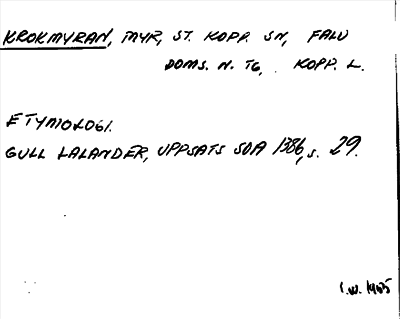 KROKMYRAN, MYR, ST. KOPP. SN, FALU
DOMS. N. TG, KOPP. L.
ETYMOLOGI.
GULL LALANDER, UPPSATS SOA 1386, s. 29.
I.W. 1975